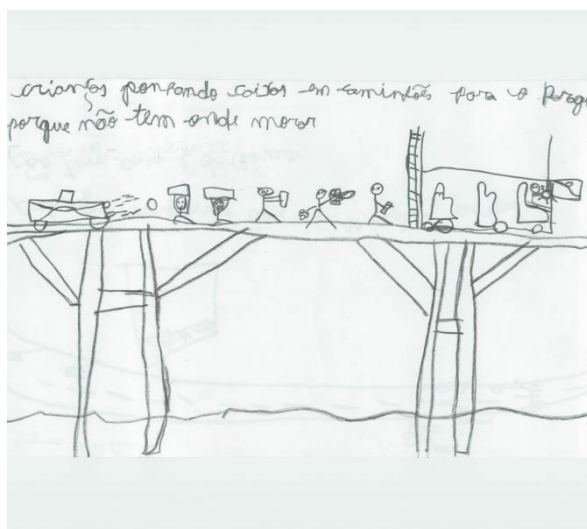 crianças ponpando coisas em caminhões para o Parag
porque não tem onde morar